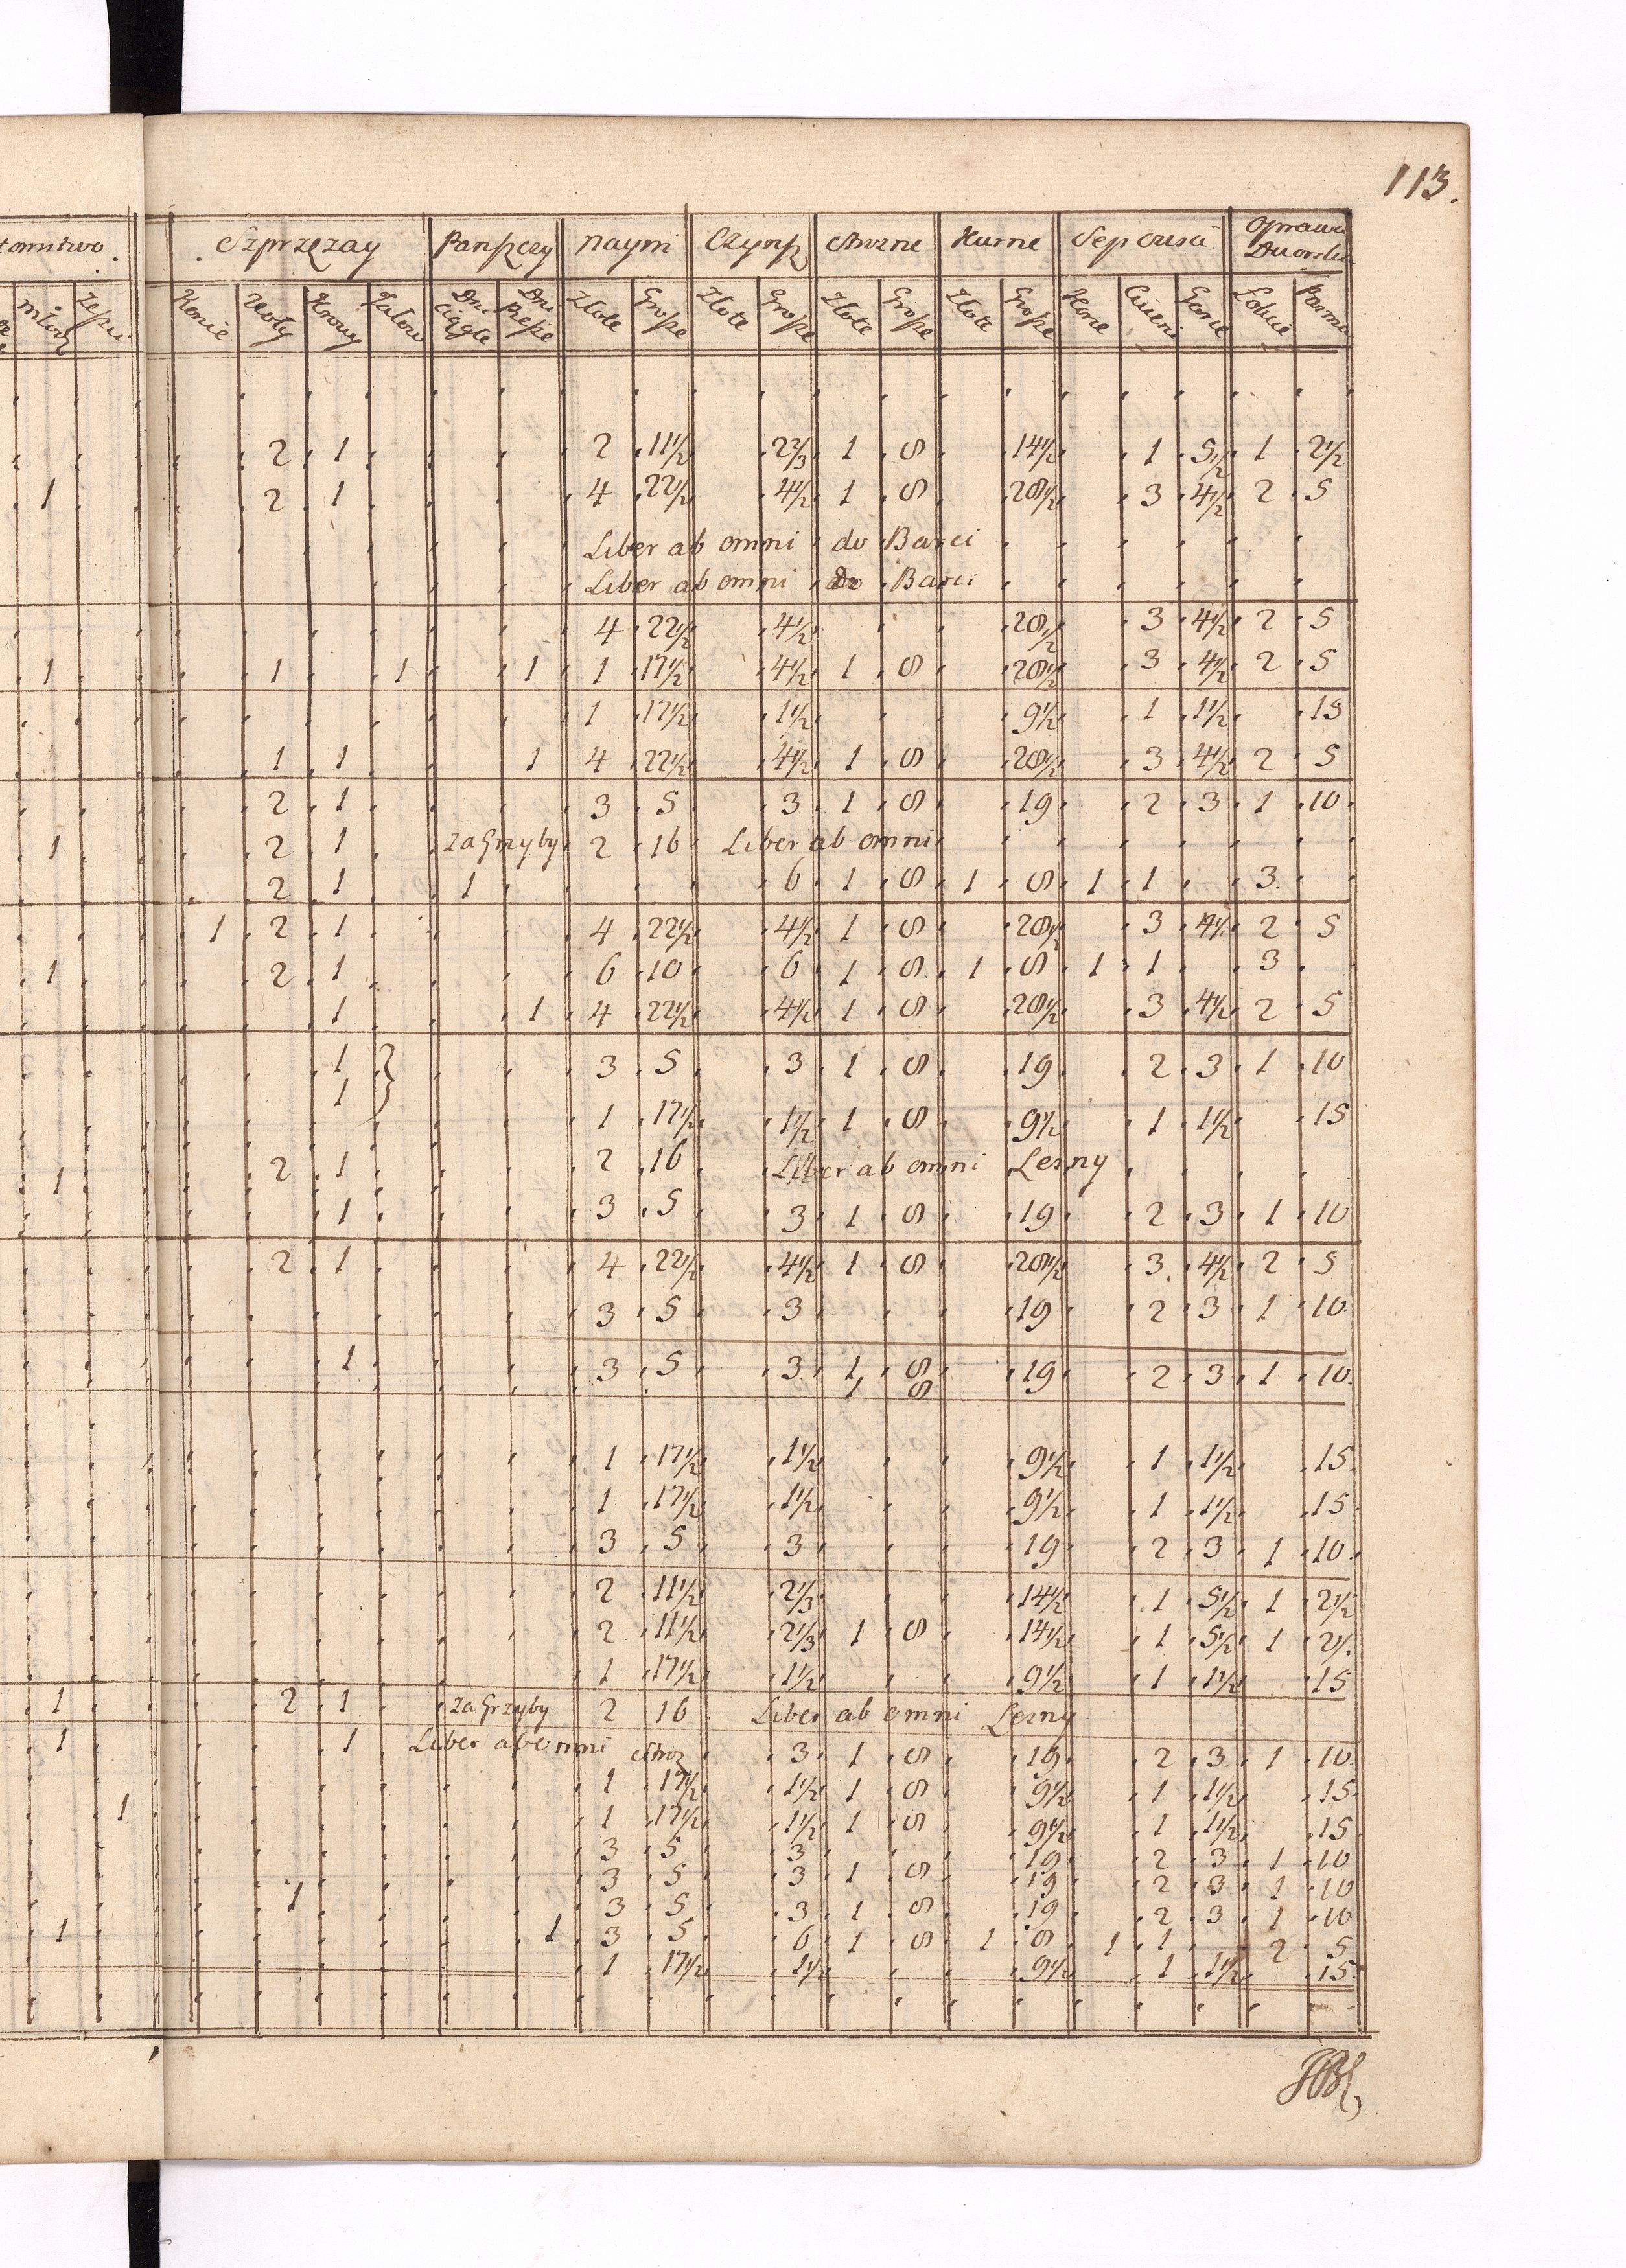 113.
Szprzężay Panszczy naymi Czynsz Strożne Kurne Sep owsa Oprawa Dworska
młodz Konie Woły Krowy Dni ciągłe Dni piesze Złote Grosze Złote Grosze Złote Grosze Złote Grosze Garce Łokcie Pasma
2 1 2 11½ 2⅔ 1 8 14½ 1 5½ 1 2½
1 2 1 4 22½ 4½ 1 8 28½ 3 4½ 2 5
Liber ab omni do Barci
Liber ab omni do Barci
4 22½ 4½ 28½ 3 4½ 2 5
1 1 1 1 1 17½ 4½ 1 8 28½ 3 4½ 2 5
1 17½ 1½ 9½ 1 1½ 15
1 1 1 4 22½ 4½ 1 8 28½ 3 4½ 2 5
2 1 3 5 3 1 8 19 2 3 1 10
1 2 1 za Grzyby 2 16 Liber ab omni
2 1 1 6 1 8 1 8 1 1 3
1 2 1 4 22½ 4½ 1 8 28½ 3 4½ 2 5
1 2 1 6 10 6 1 8 1 8 1 1 3
1 1 4 22½ 4½ 1 8 28½ 3 4½ 2 5
1 2 3 5 3 1 8 19 2 3 1 10
1
1 17½ 1½ 1 8 9½ 1 1½ 15
1 2 1 2 16 Liber ab omni Leśny
1 3 5 3 1 8 19 2 3 1 10
2 1 4 22½ 4½ 1 8 28½ 3 4½ 2 5
3 5 3 19 2 3 1 10
1 3 5 3 1 8 19 2 3 1 10
1 8
1 17½ 1½ 9½ 1 1½ 15
1 17½ 1½ 9½ 1 1½ 15
3 5 3 19 2 3 1 10
2 11½ 2⅓ 14½ 1 5½ 1 2½
2 11½ 2⅓ 1 8 14½ 1 5½ 1 2½
1 17½ 1½ 9½ 1 1½ 15
1 2 1 za Grzyby 2 16 Liber ab omni Leśny
1 1 Liber ab omni Stroż 3 1 8 19 2 3 1 10
1 17½ 1½ 1 8 9½ 1 1½ 15
1 1 17½ 1½ 1 8 9½ 1 1½ 15
3 5 3 19 2 3 1 10
3 5 3 1 8 19 2 3 1 10
1 3 5 3 1 8 19 2 3 1 10
1 1 3 5 6 1 8 1 8 1 1 2 5
1 17½ 1½ 9½ 1 1½ 15